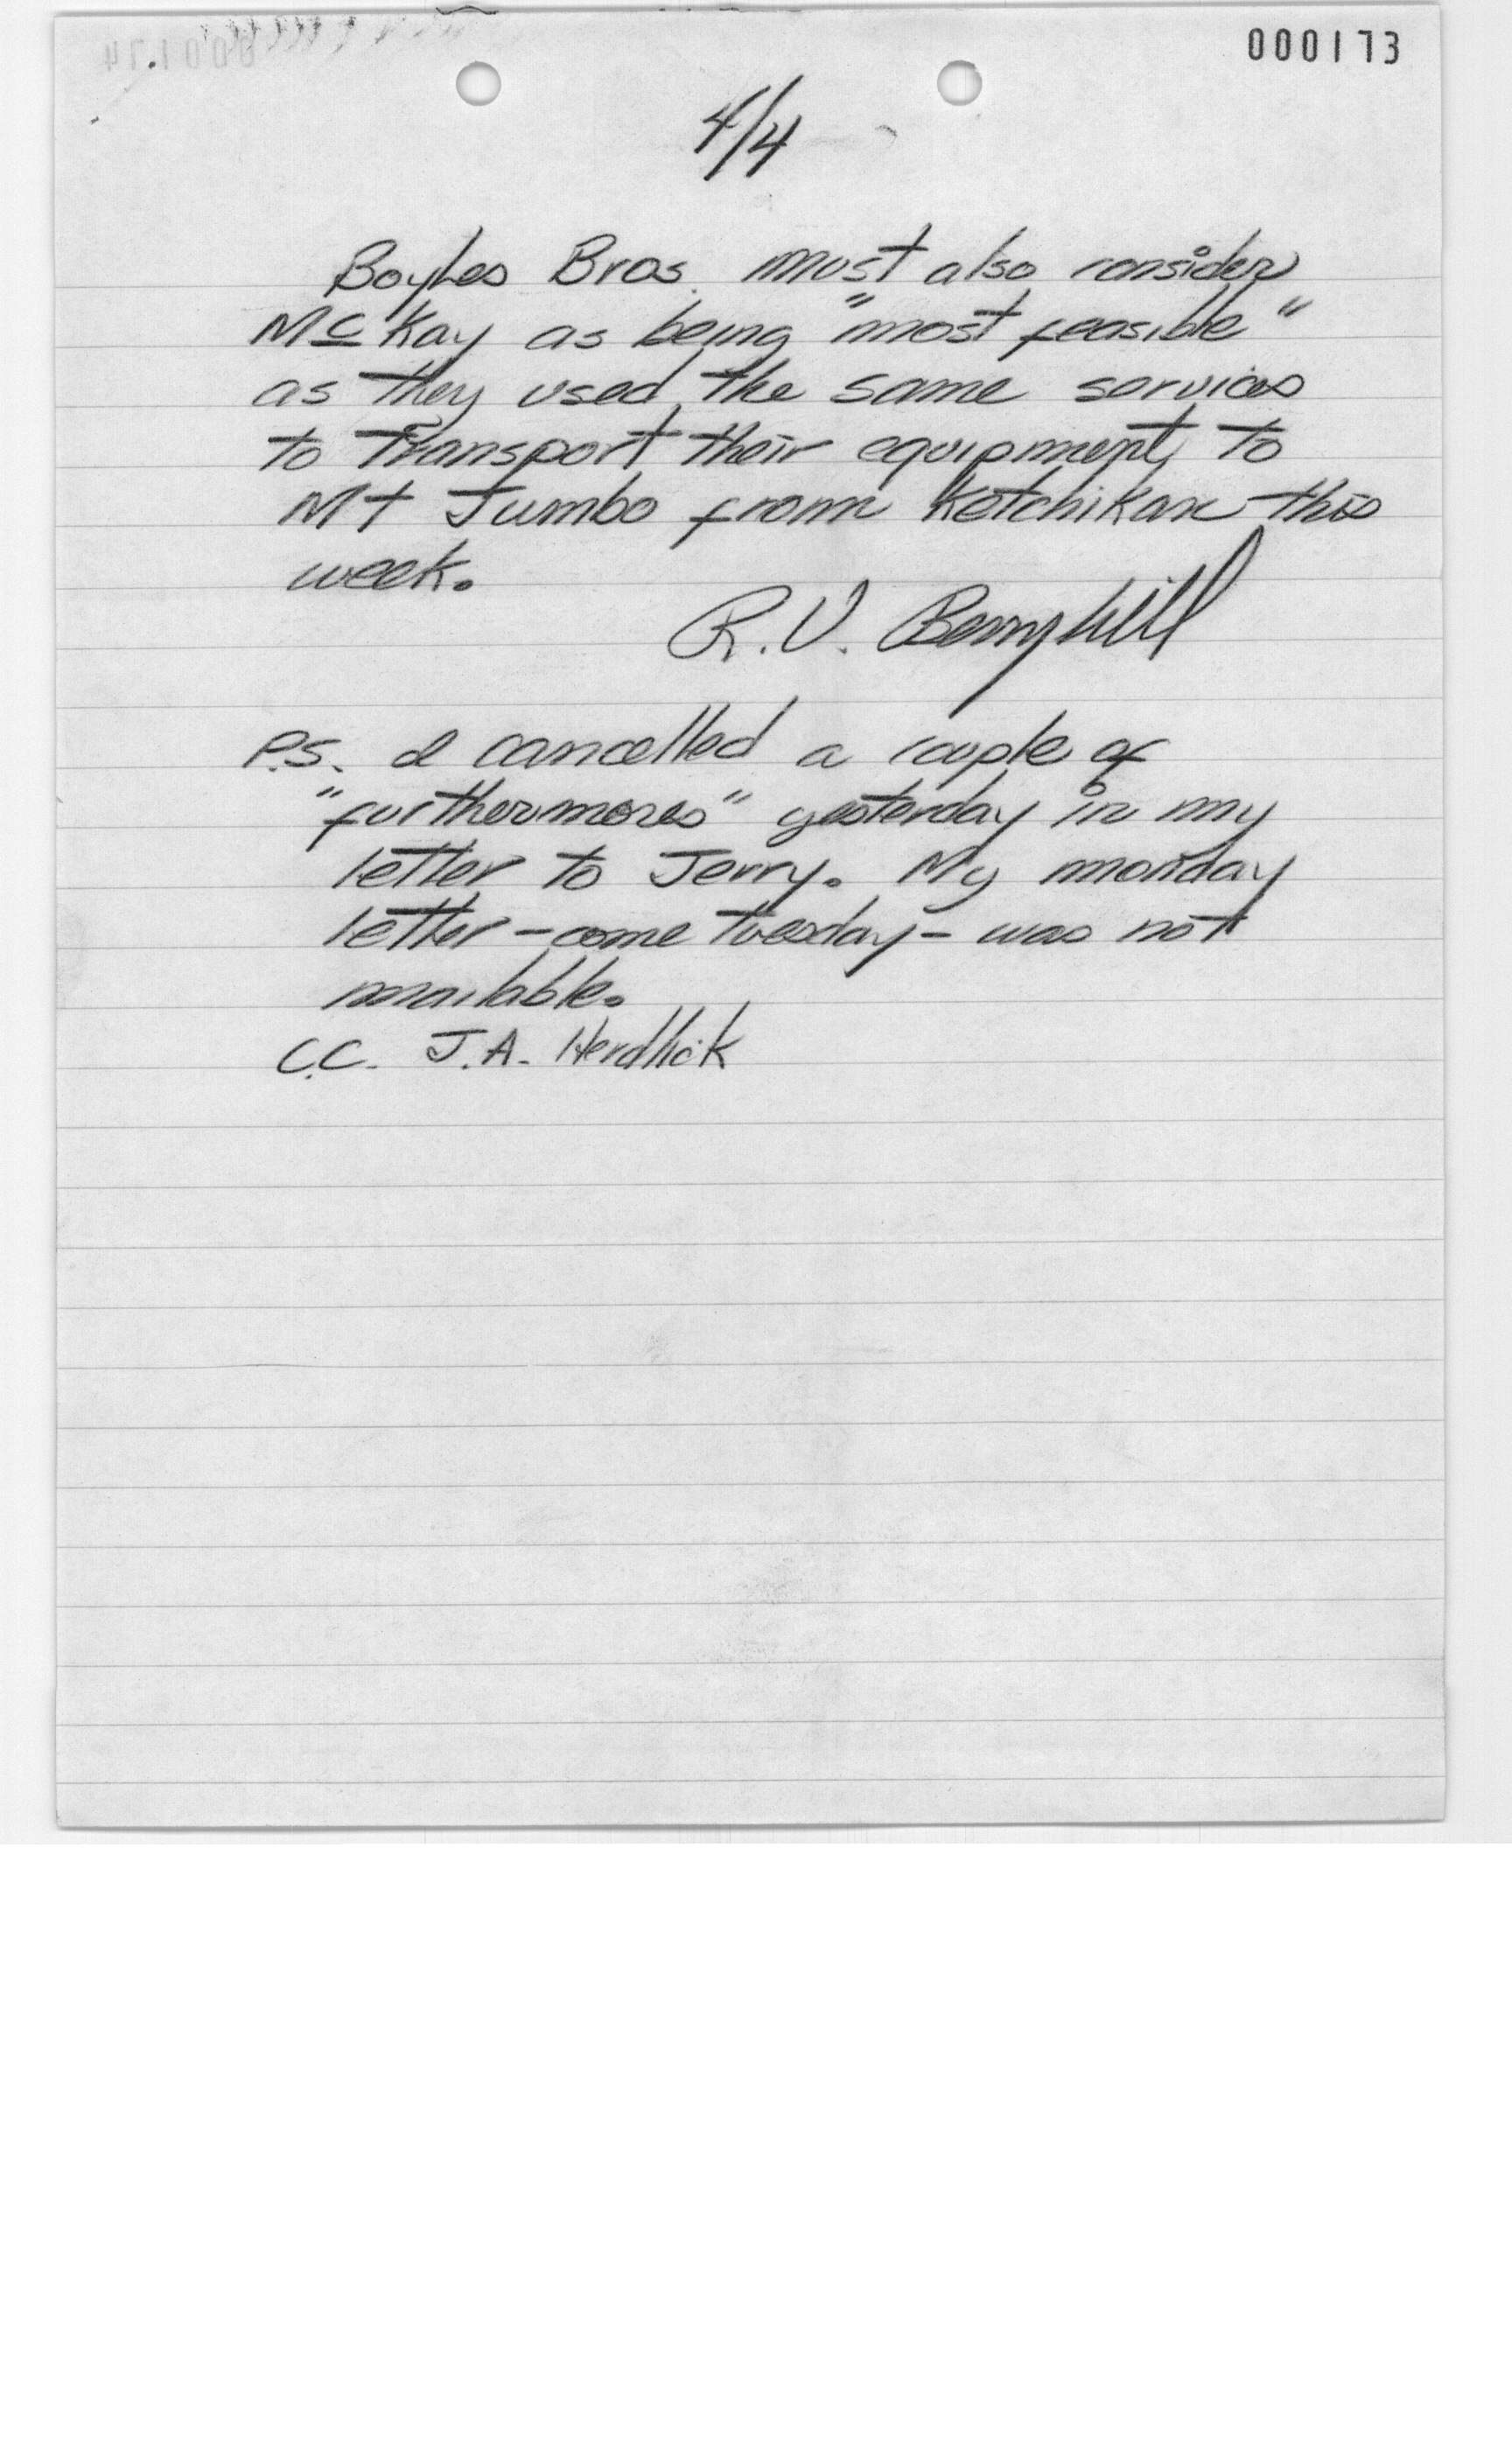 000173
4/4
Boyles Bros. must also consider
McKay as being "most feasible"
as they used the same services
to transport their equipment to
Mt Jumbo from Ketchikan this
week.
R.V. Berryhill
P.S. I cancelled a couple of
"furthermores" yesterday in my
letter to Jerry. My monday
letter - come tuesday - was not
mailable.
C.C. J.A. Herdlick